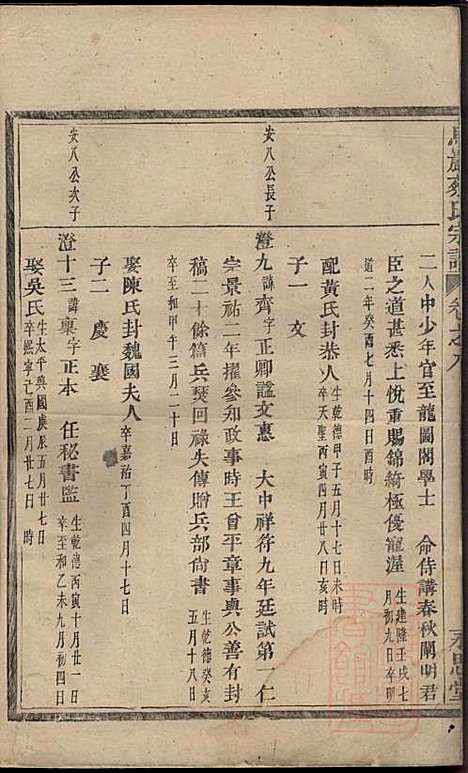 二人中少年官至龍圖閣學士　命侍講春秋闡明君
臣之道甚悉上悅重賜錦綺極優寵渥
生建隆壬戌七月初九日卒明道二年癸酉七月十四日酉時
配黃氏封恭人
生乾德甲子五月十七日未時
卒天聖丙寅四月廿八日亥時
子一　文
安八公長子
澄九　諱齊字正卿謚文惠　大中祥符九年廷試第一仁
宗景祐二年擢參知政事時王曾平章事與公善有封
稿二十餘篇兵燹回祿失傳贈兵部尚書
生乾德癸亥五月十八日
卒至和甲午三月二十日
娶陳氏封魏國夫人
卒嘉祐丁酉四月十七日
子二　慶　襃
安八公次子
澄十三　諱稟字正本　任秘書監
生乾德丙寅十月廿一日
卒至和乙未九月初四日
娶吳氏
生太平興國庚辰五月廿七日
卒熙寧己酉二月廿七日　時
氏宗譜　卷之八